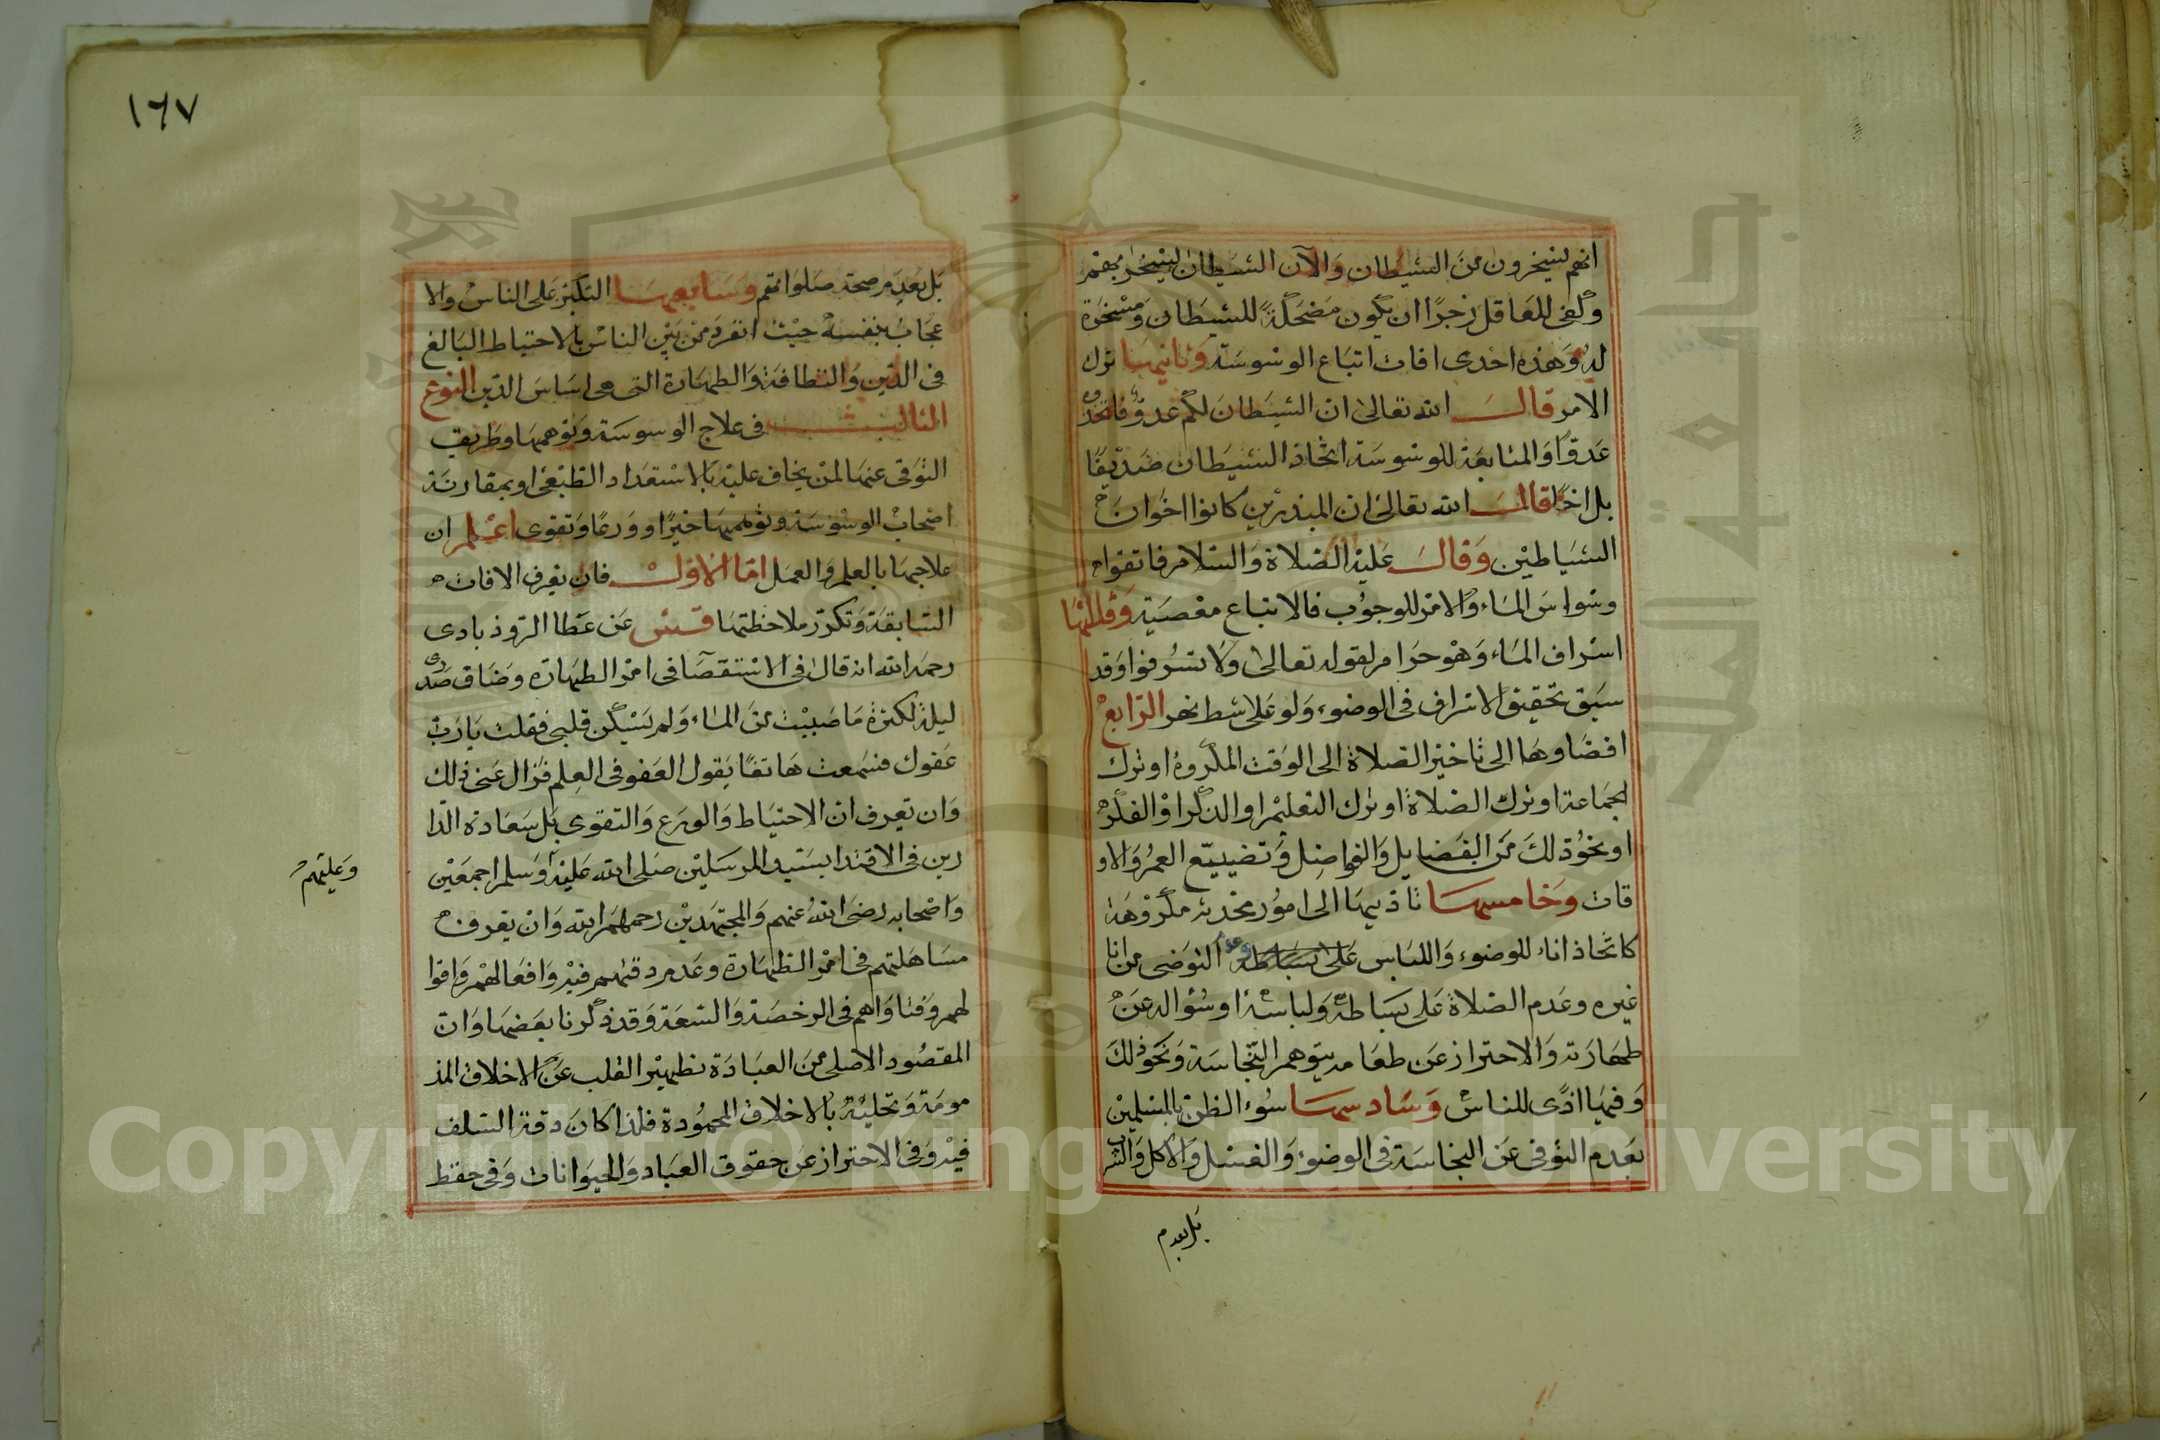 انهم يسخرون من الشيطان والآن الشيطان ليسخر بهم
وكفى للعاقل زجرا ان يكون مضحكة للشيطان ومسخرة
له وهذه احدى افات اتباع الوسوسة وثانيها ترك
الامر قال الله تعالى ان الشيطان لكم عدو فاتخذوه
عدوا والمتابعة للوسوسة اتخاذ الشيطان صديقا
بل اخا قال الله تعالى ان المبذرين كانوا اخوان
الشياطين وقال عليه الصلاة والسلام فاتقوا
وسواس الماء والامر للوجوب فالاتباع معصية وثالثها
اسراف الماء وهو حرام لقوله تعالى ولا تسرفوا وقد
سبق تحقيق الاسراف في الوضوء ولو على شط نهر الرابع
افضاوها الى تاخير الصلاة الى الوقت المكروه او ترك
لجماعة او ترك الصلاة او ترك التعليم او الذكر او الفكر
او نحو ذلك من الفضايل والفواضل وتضييع العمر والاو
قات وخامسها تاذيها الى امور محدثه مكروهة
كاتخاذ اناء للوضوء واللباس على بساطه التوضى من انا
غيره وعدم الصلاة على بساطه ولباسه او سؤاله عن
طهارته والاحتراز عن طعام بتوهم النجاسة ونحو ذلك
وفيها اذى للناس وسادسها سوء الظن بالمسلمين
بعدم التوقى عن النجاسة في الوضوء والغسل والاكل والشرب
بل بعدم
١٦٧
بل بعدم صحة صلواتهم وسابعها التكبر على الناس والا
عجاب بنفسه حيث انفرد من بين الناس بالاحتياط البالغ
في الدين والنظافة والطهارة التي هي اساس الدين النوع
الثالث في علاج الوسوسة وتوهمها وطريق
التوقى عنها لمن يخاف عليه بالاستعداد الطبعى او بمقارنة
اصحاب الوسوسة وتوهمها خيرا وورعا وتقوى اعلم ان
علاجها بالعلم والعمل اما الاول فان يعرف الافات
السابقة وتكرر ملاحظتها قس عن عطا الروذبادى
رحمه الله انه قال في الاستقصا في امر الطهارة وضاق صدرى
ليلة لكثرة ما صببت من الماء ولم يسكن قلبى فقلت يا رب
عفوك فسمعت هاتفا يقول العفو في العلم فزال عنى ذلك
وان تعرف ان الاحتياط والورع والتقوى بل سعادة الدا
رين في الاقتدا بسيد المرسلين صلى الله عليه وسلم اجمعين
وعليهم
واصحابه رضى الله عنهم والمجتهدين رحمهم الله وان يعرف
مساهلتهم في امر الطهارة وعدم دقتهم فيه وافعالهم واقوا
لهم وفتاواهم في الرخصة والسعة وقد ذكرنا بعضها وان
المقصود الاصلى من العبادة تطهير القلب عن الاخلاق المذ
مومة وتحليته بالاخلاق المحمودة فلذا كان دقة السلف
فيه وفي الاحتراز عن حقوق العباد والحيوانات وفي حفظ
Copyright © King Saud University